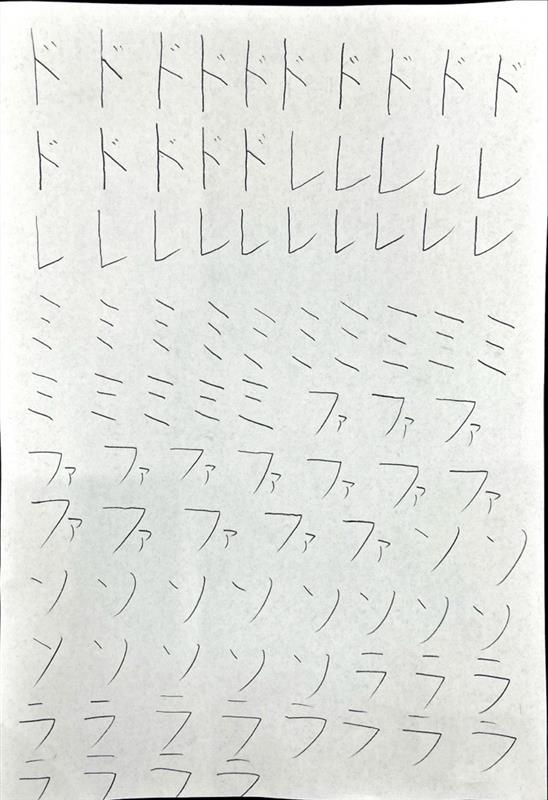 ドドドドドドドドドド
ドドドドドレレレレレ
レレレレレレレレレレ
ミミミミミミミミミミ
ミミミミミファファファ
ファファファファファファファ
ファファファファファソソ
ソソソソソソソソ
ソソソソソラララ
ララララララララ
ララララ